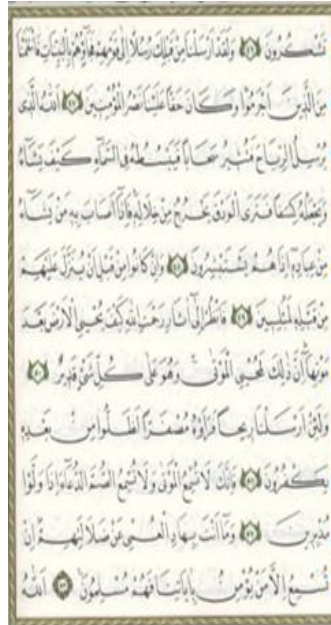 تَشْكُرُونَ ﴿٤٦﴾ وَلَقَدْ اَرْسَلْنَا مِنْ قَبْلِكَ رُسُلًا اِلٰى قَوْمِهِمْ فَجَٓاؤُ۫هُمْ بِالْبَيِّنَاتِ فَانْتَقَمْنَا
مِنَ الَّذ۪ينَ اَجْرَمُوا وَكَانَ حَقًّا عَلَيْنَا نَصْرُ الْمُؤْمِن۪ينَ ﴿٤٧﴾ اَللّٰهُ الَّذ۪ي
يُرْسِلُ الرِّيَاحَ فَتُث۪يرُ سَحَابًا فَيَبْسُطُهُ فِي السَّمَٓاءِ كَيْفَ يَشَٓاءُ
وَيَجْعَلُهُ كِسَفًا فَتَرَى الْوَدْقَ يَخْرُجُ مِنْ خِلَالِه۪ فَاِذَٓا اَصَابَ بِه۪ مَنْ يَشَٓاءُ
مِنْ عِبَادِه۪ٓ اِذَا هُمْ يَسْتَبْشِرُونَ ﴿٤٨﴾ وَاِنْ كَانُوا مِنْ قَبْلِ اَنْ يُنَزَّلَ عَلَيْهِمْ
مِنْ قَبْلِه۪ لَمُبْلِس۪ينَ ﴿٤٩﴾ فَانْظُرْ اِلٰٓى اٰثَارِ رَحْمَتِ اللّٰهِ كَيْفَ يُحْيِي الْاَرْضَ بَعْدَ
مَوْتِهَا اِنَّ ذٰلِكَ لَمُحْيِي الْمَوْتٰى وَهُوَ عَلٰى كُلِّ شَيْءٍ قَد۪يرٌ ﴿٥٠﴾
وَلَئِنْ اَرْسَلْنَا ر۪يحًا فَرَاَوْهُ مُصْفَرًّا لَظَلُّوا مِنْ بَعْدِه۪
يَكْفُرُونَ ﴿٥١﴾ فَاِنَّكَ لَا تُسْمِعُ الْمَوْتٰى وَلَا تُسْمِعُ الصُّمَّ الدُّعَٓاءَ اِذَا وَلَّوْا
مُدْبِر۪ينَ ﴿٥٢﴾ وَمَٓا اَنْتَ بِهَادِ الْعُمْيِ عَنْ ضَلَالَتِهِمْ اِنْ
تُسْمِعُ اِلَّا مَنْ يُؤْمِنُ بِاٰيَاتِنَا فَهُمْ مُسْلِمُونَ ﴿٥٣﴾ اَللّٰهُ